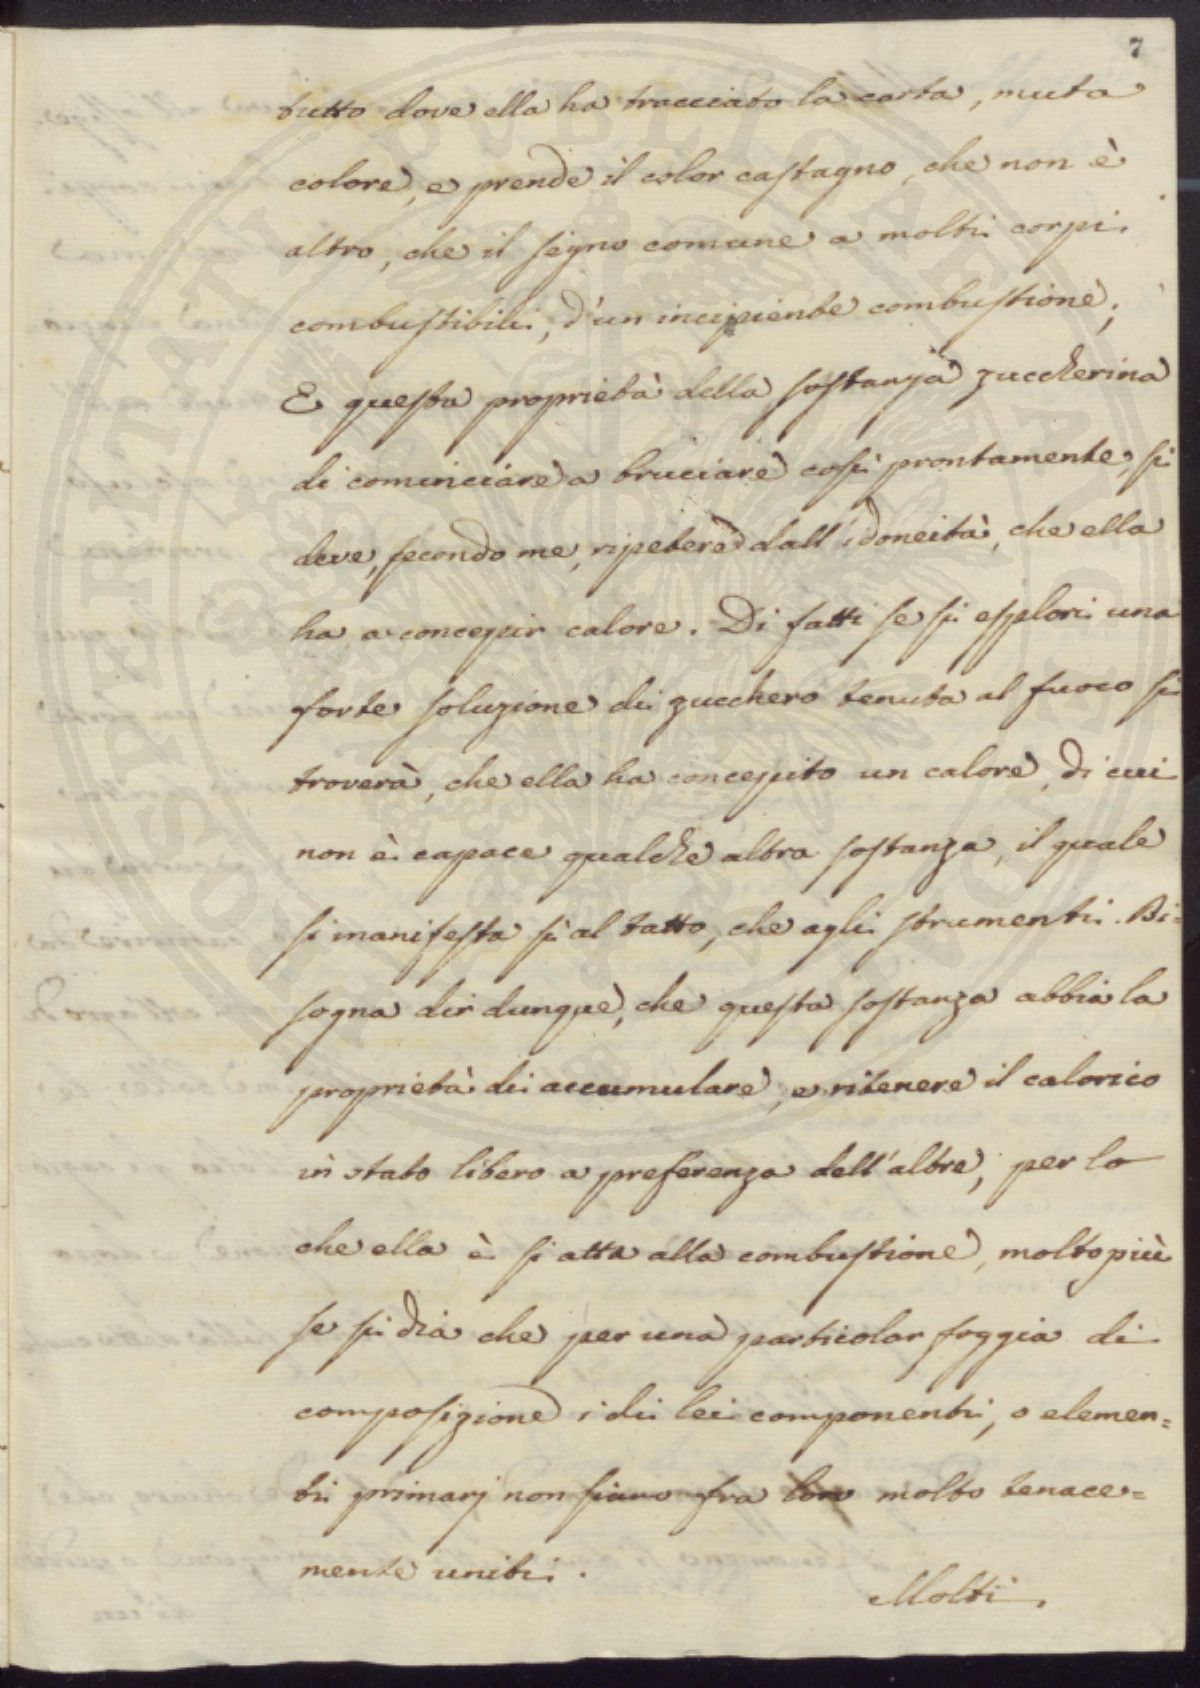 7
tutto dove ella ha tracciato la carta, muta
colore, e prende il color castagno, che non è
altro, che il segno comune a molti corpi
combustibili, d'un incipiente combustione;
E questa proprietà della sostanza zuccherina
di cominciare a bruciare così prontamente, si
deve, secondo me, ripetere dall'idoneità, che ella
ha a concepir calore. Di fatti se si esplori una
forte soluzione di zucchero tenuta al fuoco si
troverà, che ella ha concepito un calore, di cui
non è capace qualche altra sostanza, il quale
si manifesta sì al tatto, che agli strumenti. Bi=
sogna dir dunque, che questa sostanza abbia la
proprietà di accumulare, e ritenere il calorico
in stato libero a preferenza dell'altre, per lo
che ella è sì atta alla combustione, molto più
se si dia che per una particolar foggia di
composizione i di lei componenti, o elemen=
ti primarj non siano fra loro molto tenace=
mente uniti.
Molti
HOSPITALITATI PVBLICAE